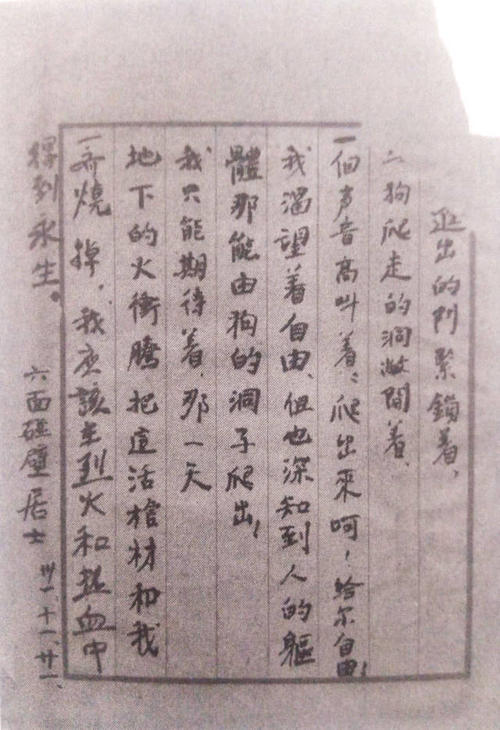 進出的門緊鎖着,
狗爬走的洞敞開着、
一個声音高叫着:爬出來呵!給尔自由!
我渴望着自由、但也深知到人的軀
體那能由狗的洞子爬出!
我只能期待着、那一天
地下的火衝騰把這活棺材和我
一齊燒掉,我应該在烈火和热血中
得到永生。
六面碰壁居士 卅一、十一、廿一、